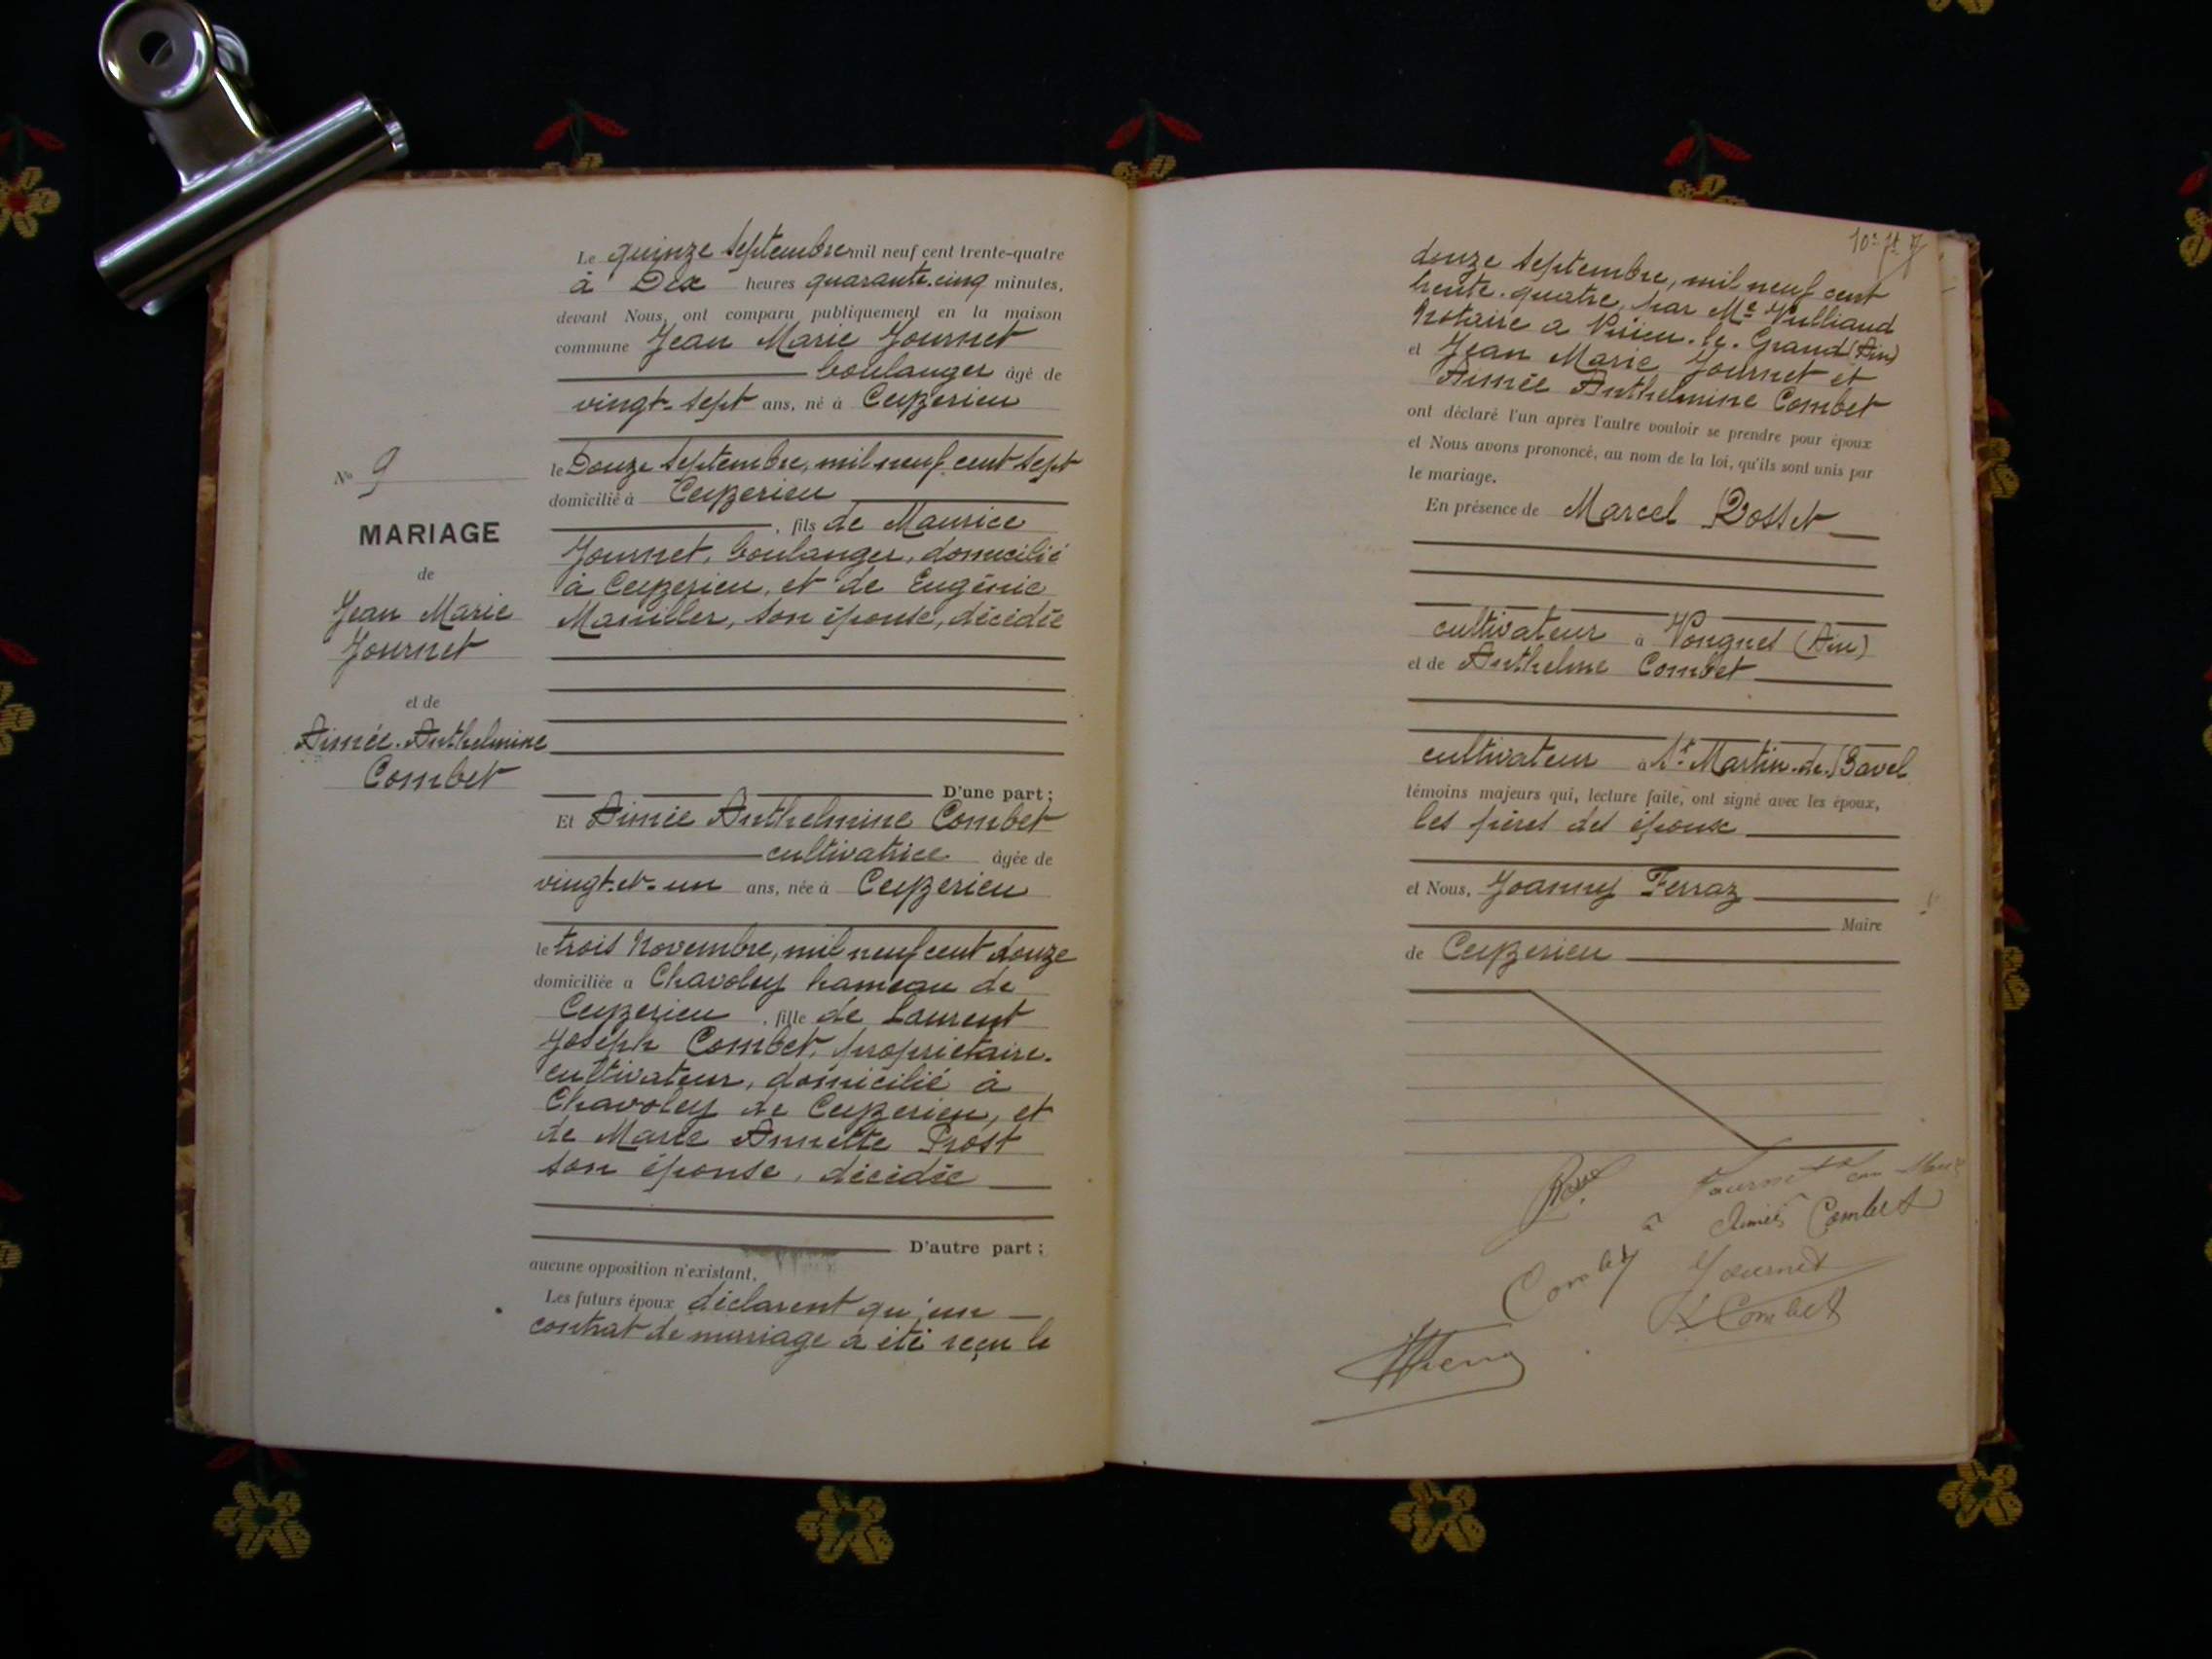 Le quinze Septembre mil neuf cent trente-quatre
à Dix heures quarante-cinq minutes,
devant Nous, ont comparu publiquement en la maison
commune Jean Marie Journet
boulanger âgé de
vingt-sept ans, né à Ceyzerieu
le Douze Septembre, mil neuf cent sept
domicilié à Ceyzerieu
, fils de Maurice
Journet, boulanger, domicilié
à Ceyzerieu, et de Eugénie
son épouse, décédée
D'une part ;
Et Aimée Anthelmine Combet
cultivatrice âgée de
vingt-et-un ans, née à Ceyzerieu
le trois Novembre, mil neuf cent douze
domiciliée à Chavoley hameau de
Ceyzerieu, fille de Laurent
Joseph Combet, propriétaire-
cultivateur, domicilié à
Chavoley de Ceyzerieu, et
de Marie Annette Prost
son épouse, décédée
D'autre part ;
aucune opposition n'existant.
Les futurs époux déclarent qu'un
contrat de mariage a été reçu le
No 9
MARIAGE
de
Jean Marie
Journet
et de
Aimée-Anthelmine
Combet
douze Septembre, mil neuf cent
trente-quatre, par Me Vulliaud
Notaire à Virieu-le-Grand (Ain)
et Jean Marie Journet et
Aimée Anthelmine Combet
ont déclaré l'un après l'autre vouloir se prendre pour époux
et Nous avons prononcé, au nom de la loi, qu'ils sont unis par
le mariage.
En présence de Marcel Rosset
cultivateur à Vongnes (Ain)
et de Anthelme Combet
cultivateur à St Martin-de-Bavel
témoins majeurs qui, lecture faite, ont signé avec les époux,
les pères des époux
et Nous, Joanny Ferraz
Maire
de Ceyzerieu
Journet
Aimée Combet
Combet
Journet
Combet